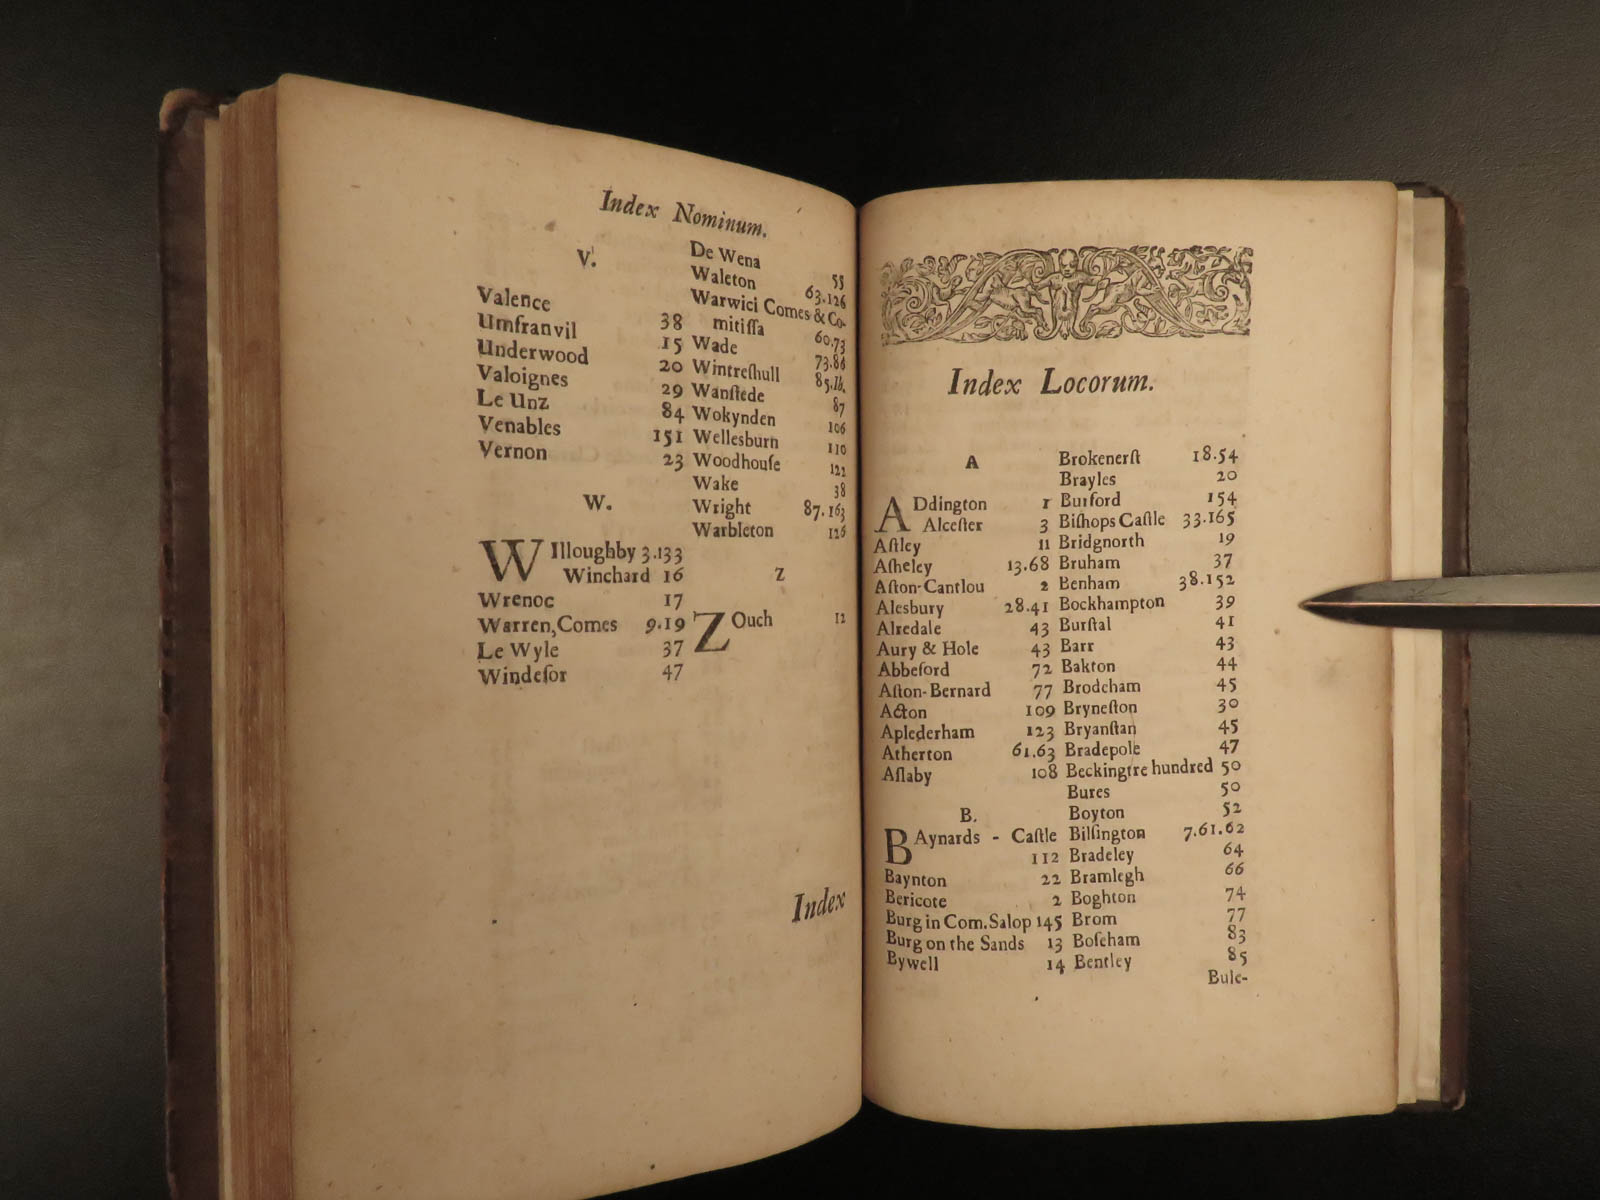 Index Nominum.
V.
Valence
Umfranvil 38
Underwood 15
Valoignes 20
Le Unz 29
Venables 84
Vernon 151
23
W.
WIlloughby 3.133
Winchard 16
Wrenoc 17
Warren, Comes 9.19
Le Wyle 37
Windeſor 47
De Wena 55
Waleton 63.126
Warwici Comes & Co-
mitiſſa 60.73
Wade 73.86
Wintreſhull 85.Ib.
Wanſtede 87
Wokynden 106
Wellesburn 110
Woodhouſe 122
Wake 38
Wright 87.163
Warbleton 126
Z
ZOuch 12
Index
Index Locorum.
A
ADdington 1
Alceſter 3
Aſtley 11
Aſheley 13.68
Aſton-Cantlou 2
Alesbury 28.41
Alredale 43
Aury & Hole 43
Abbeford 72
Aſton-Bernard 77
Acton 109
Aplederham 123
Atherton 61.63
Aſlaby 108
B.
BAynards - Caſtle
112
Baynton 22
Bericote 2
Burg in Com. Salop 145
Burg on the Sands 13
Bywell 14
Brokenerſt 18.54
Brayles 20
Burford 154
Biſhops Caſtle 33.165
Bridgnorth 19
Bruham 37
Benham 38.152
Bockhampton 39
Burſtal 41
Barr 43
Bakton 44
Brodeham 45
Bryneſton 30
Bryanſtan 45
Bradepole 47
Beckingtre hundred 50
Bures 50
Boyton 52
Bilſington 7.61.62
Bradeley 64
Bramlegh 66
Boghton 74
Brom 77
Boſeham 83
Bentley 85
Bule-